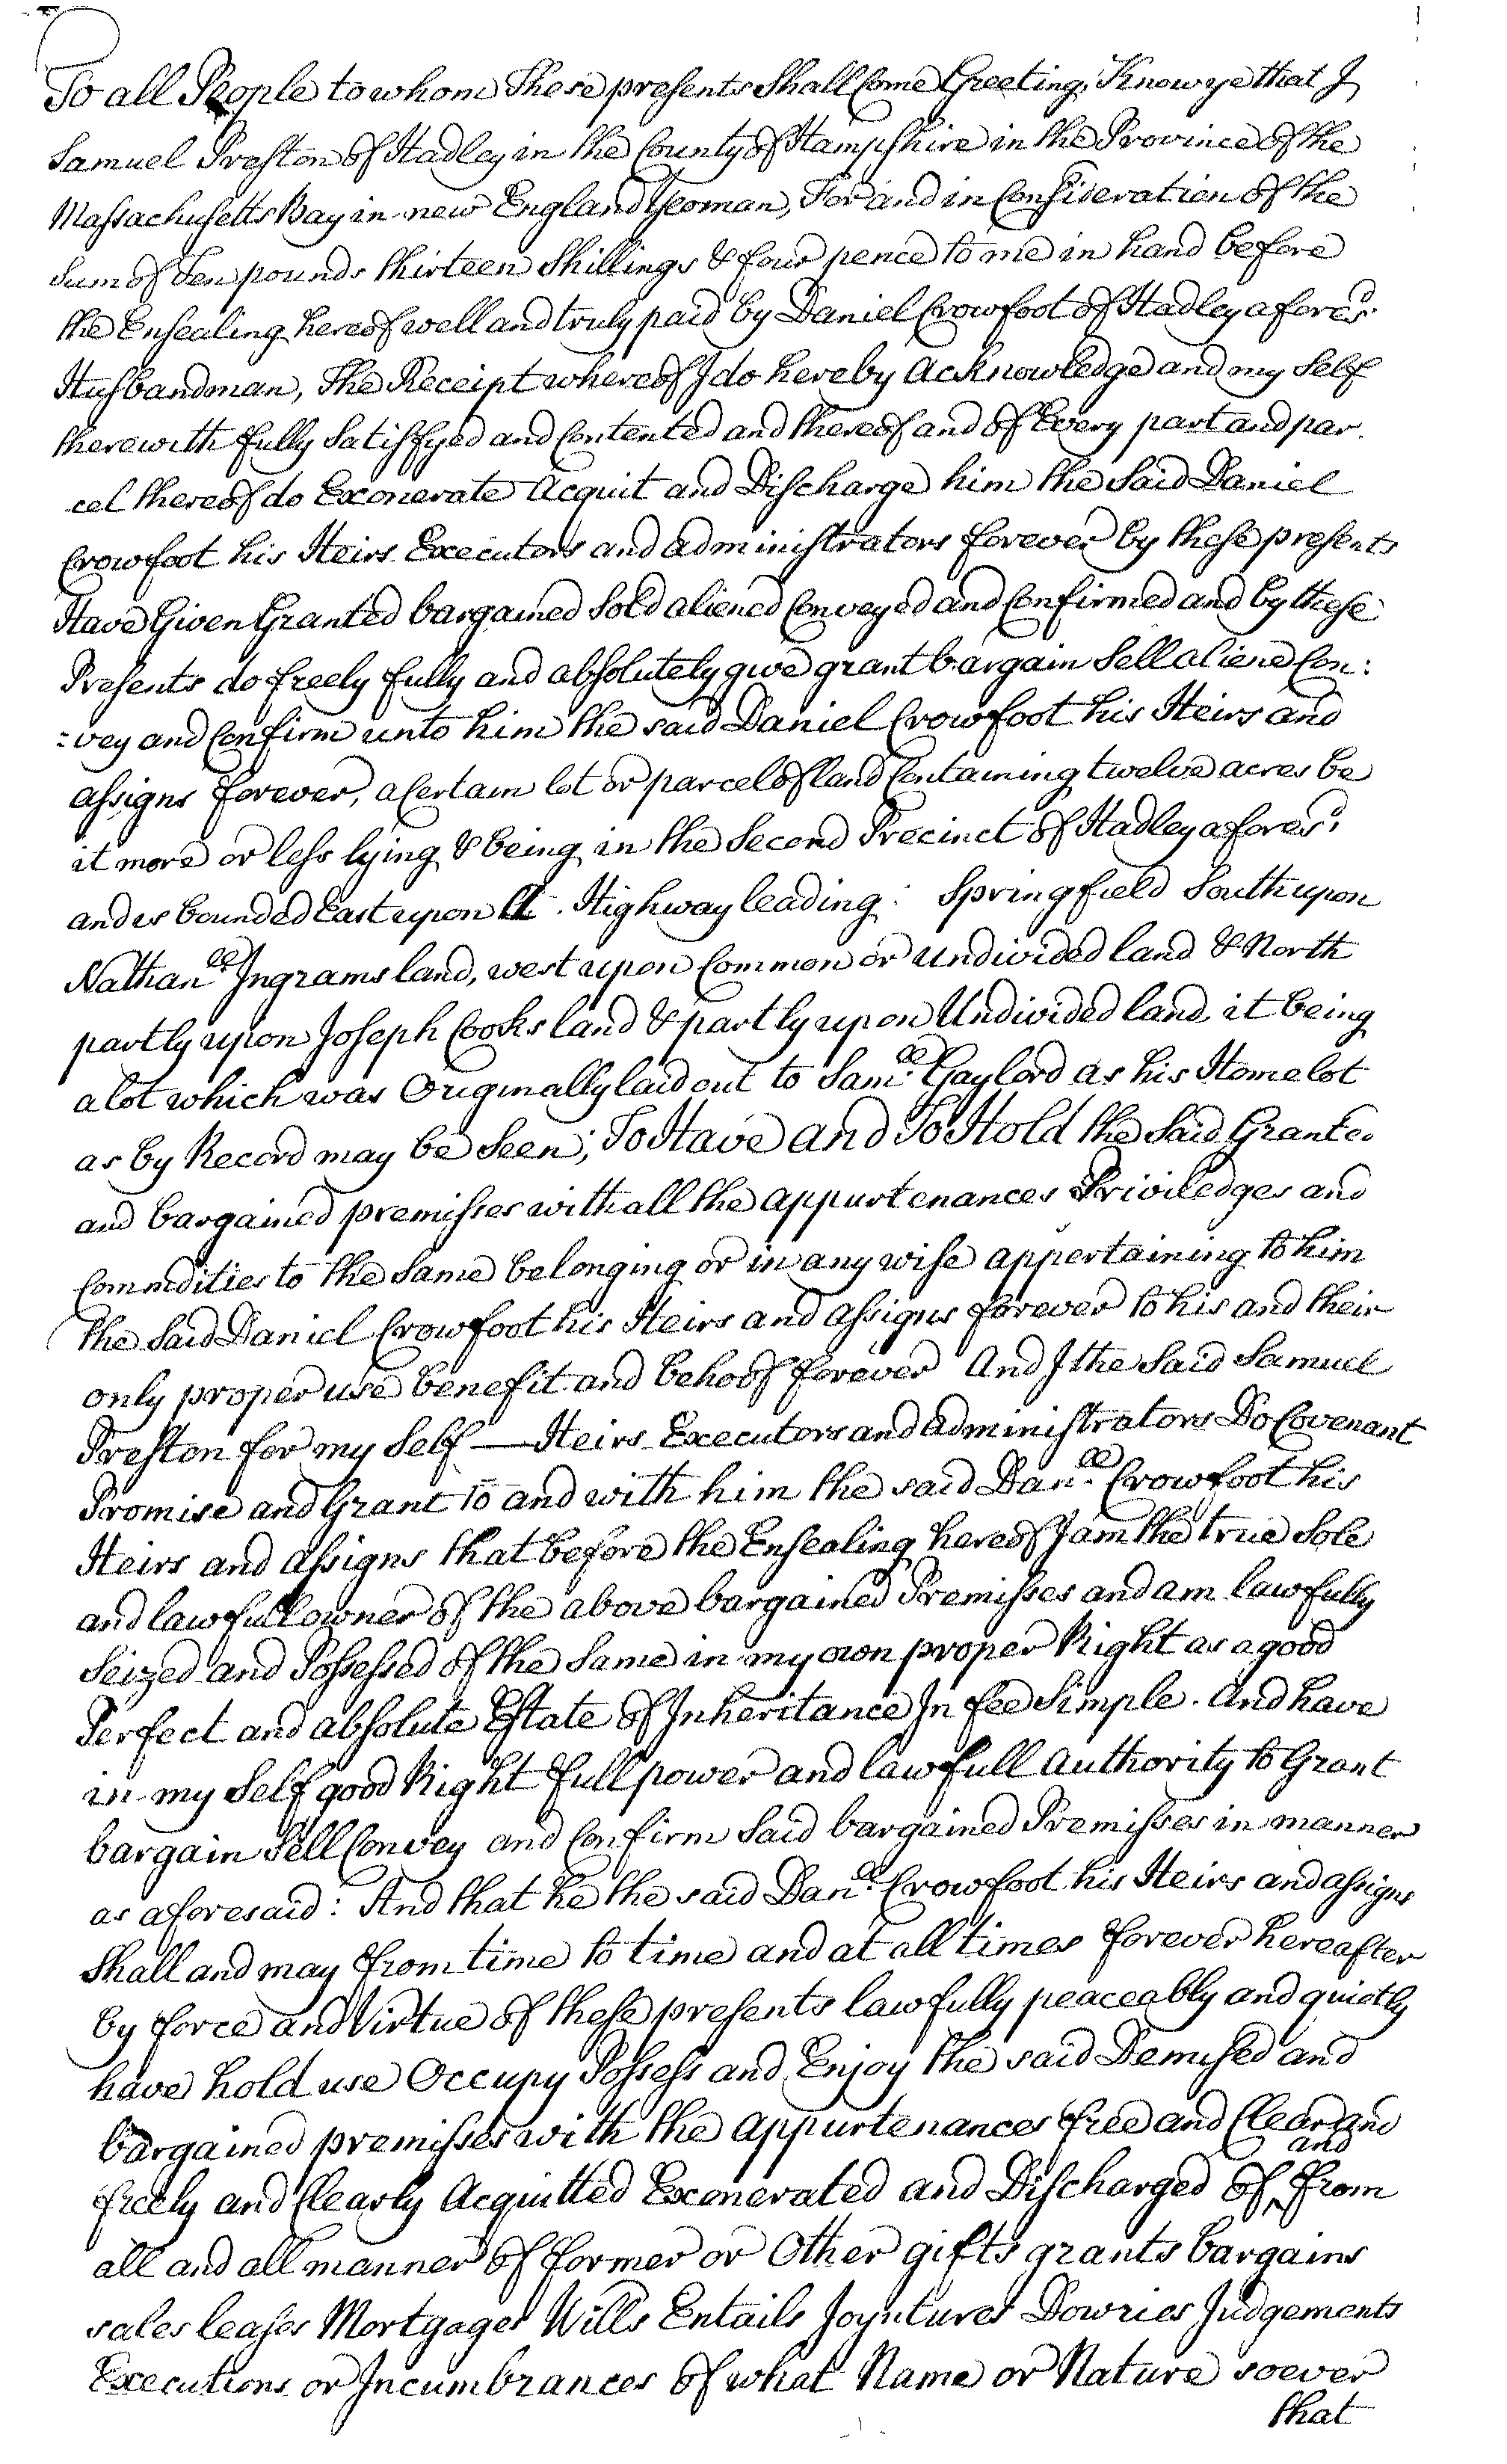 To all People to whom These presents Shall Come Greeting, Know ye that I
Samuel Preston of Hadley in the County of Hampshire in the Province of the
Massachusetts Bay in new England Yeoman, For and in Consideration of the
Sum of Ten pounds thirteen Shillings & four pence to me in hand before
the Ensealing hereof well and truly paid by Daniel Crowfoot of Hadley afores.d
Husbandman, The Receipt whereof I do hereby Acknowledge and my Self
therewith fully Satisfyed and Contented and thereof and of Every part and par.
cel thereof do Exonerate Acquit and Discharge him the Said Daniel
Crowfoot his Heirs Executors and administrators forever by these presents
Have Given Granted bargained Sold aliened Conveyed and Confirmed and by these
Presents do freely fully and absolutely give grant bargain Sell aliene Con:
:vey and Confirm unto him the said Daniel Crowfoot his Heirs and
assigns forever, a Certain lot or parcel of land Containing twelve acres be
it more or less lying & being in the Second Precinct of Hadley afores.d
and is bounded East upon Highway leading Springfield South upon
Nathan.ll Ingrams land, west upon Common or Undivided land & North
partly upon Joseph Cooks land & partly upon Undivided land it being
a lot which was Originally laid out to Sam.ll Gaylord as his Home lot
as by Record may be Seen; To Have and To Hold the Said Grante.
and bargained premisses with all the appurtenances Priviledges and
Commodities to the Same belonging or in any wise appertaining to him
the Said Daniel Crowfoot his Heirs and assigns forever to his and their
only proper use benefit and behoof forever And I the Said Samuel
Preston for my Self — Heirs Executors and administrators Do Covenant
Promise and Grant to and with him the said Dan.ll Crowfoot his
Heirs and assigns that before the Ensealing hereof I am the true Sole
and lawfull owner of the above bargained Premisses and am lawfully
Seized and Possessed of the Same in my own proper Right as a good
Perfect and absolute Estate of Inheritance In fee Simple. And have
in my Self good Right full power and lawfull authority to Grant
bargain Sell Convey and Confirm Said bargained Premisses in manner
as aforesaid: And that he the said Dan.ll Crowfoot his Heirs and assigns
Shall and may from time to time and at all times forever hereafter
by force and Virtue of these presents lawfully peaceably and quietly
have hold use Occupy Possess and Enjoy the said Demised and
bargained premisses with the appurtenances free and Clear and
and
freely and Clearly Acquitted Exonerated and Discharged of, from
all and all manner of former or Other gifts grants bargains
sales leases Mortgages Wills Entails Joyntures Dowries Judgements
Executions or Incumbrances of what Name or Nature soever
that